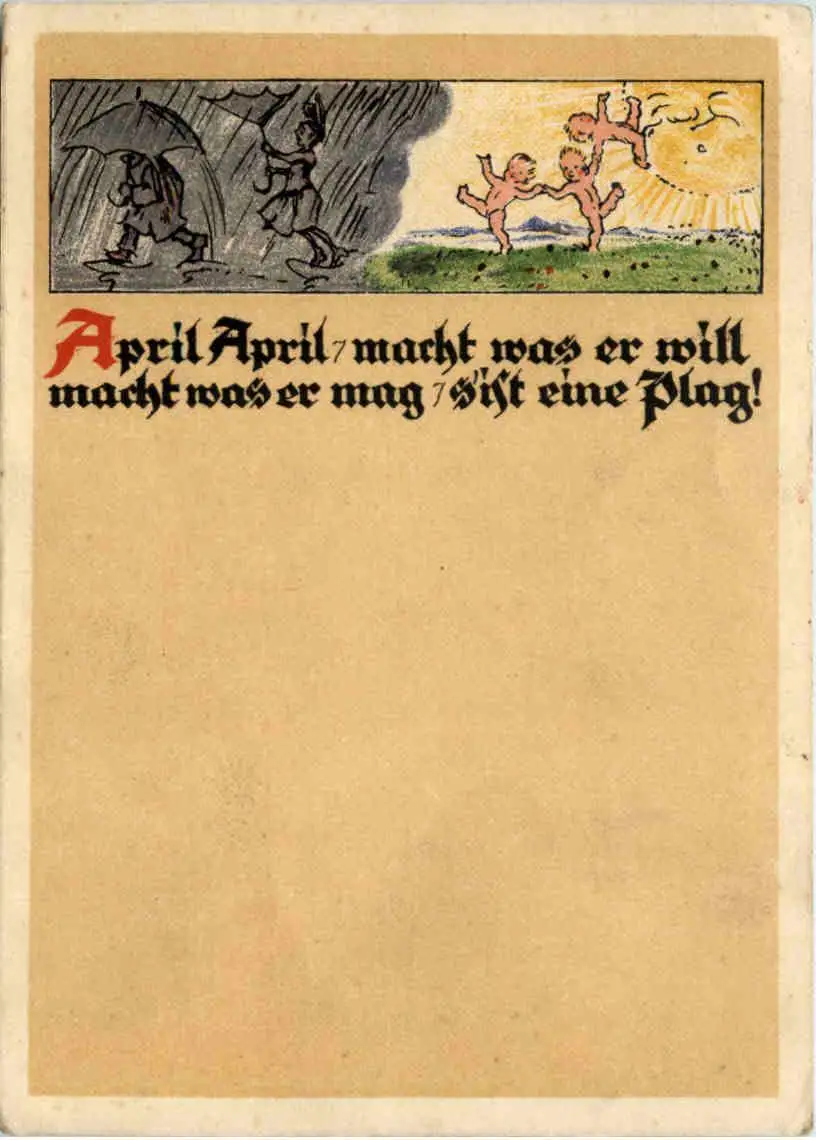 April April, macht was er will
macht was er mag, s'ist eine Plag!